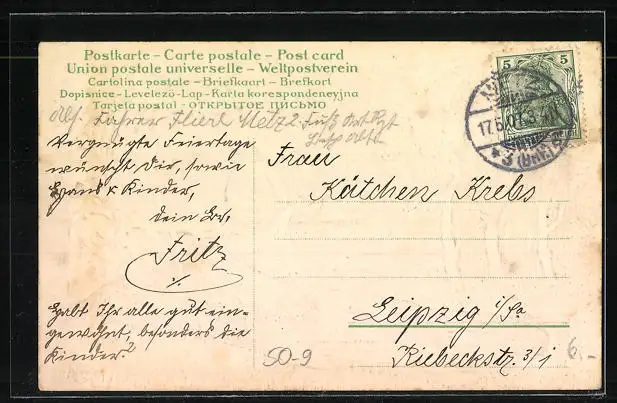 Postkarte – Carte postale – Post card
Union postale universelle – Weltpostverein
Cartolina postale – Briefkaart – Brefkort
Dopisnice – Levelező-Lap – Karta korespondencyjna
Tarjeta postal – ОТКРЫТОЕ ПИСЬМО
5 5
17.5.
*3
Metz 2
Vergnügte Feiertage
wünscht Dir, sowie
Hans & Kinder,
dein Br.
Fritz
Habt Ihr alle gut ein-
gewohnt, besonders die
Kinder?
Frau
Kätchen Krebs
Leipzig i/Sa
Riebeckstr. 3/i
50-9
6.-